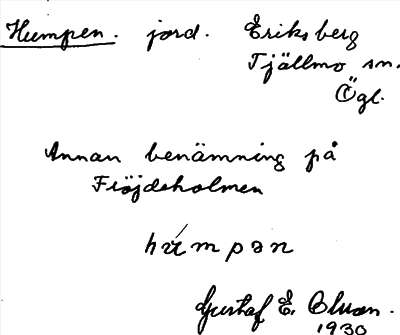 Humpen. jord. Eriksberg
Tjällmo sn.
Ögl.
Annan benämning på
Fröjdeholmen
húmpən
Gustaf E.
1930